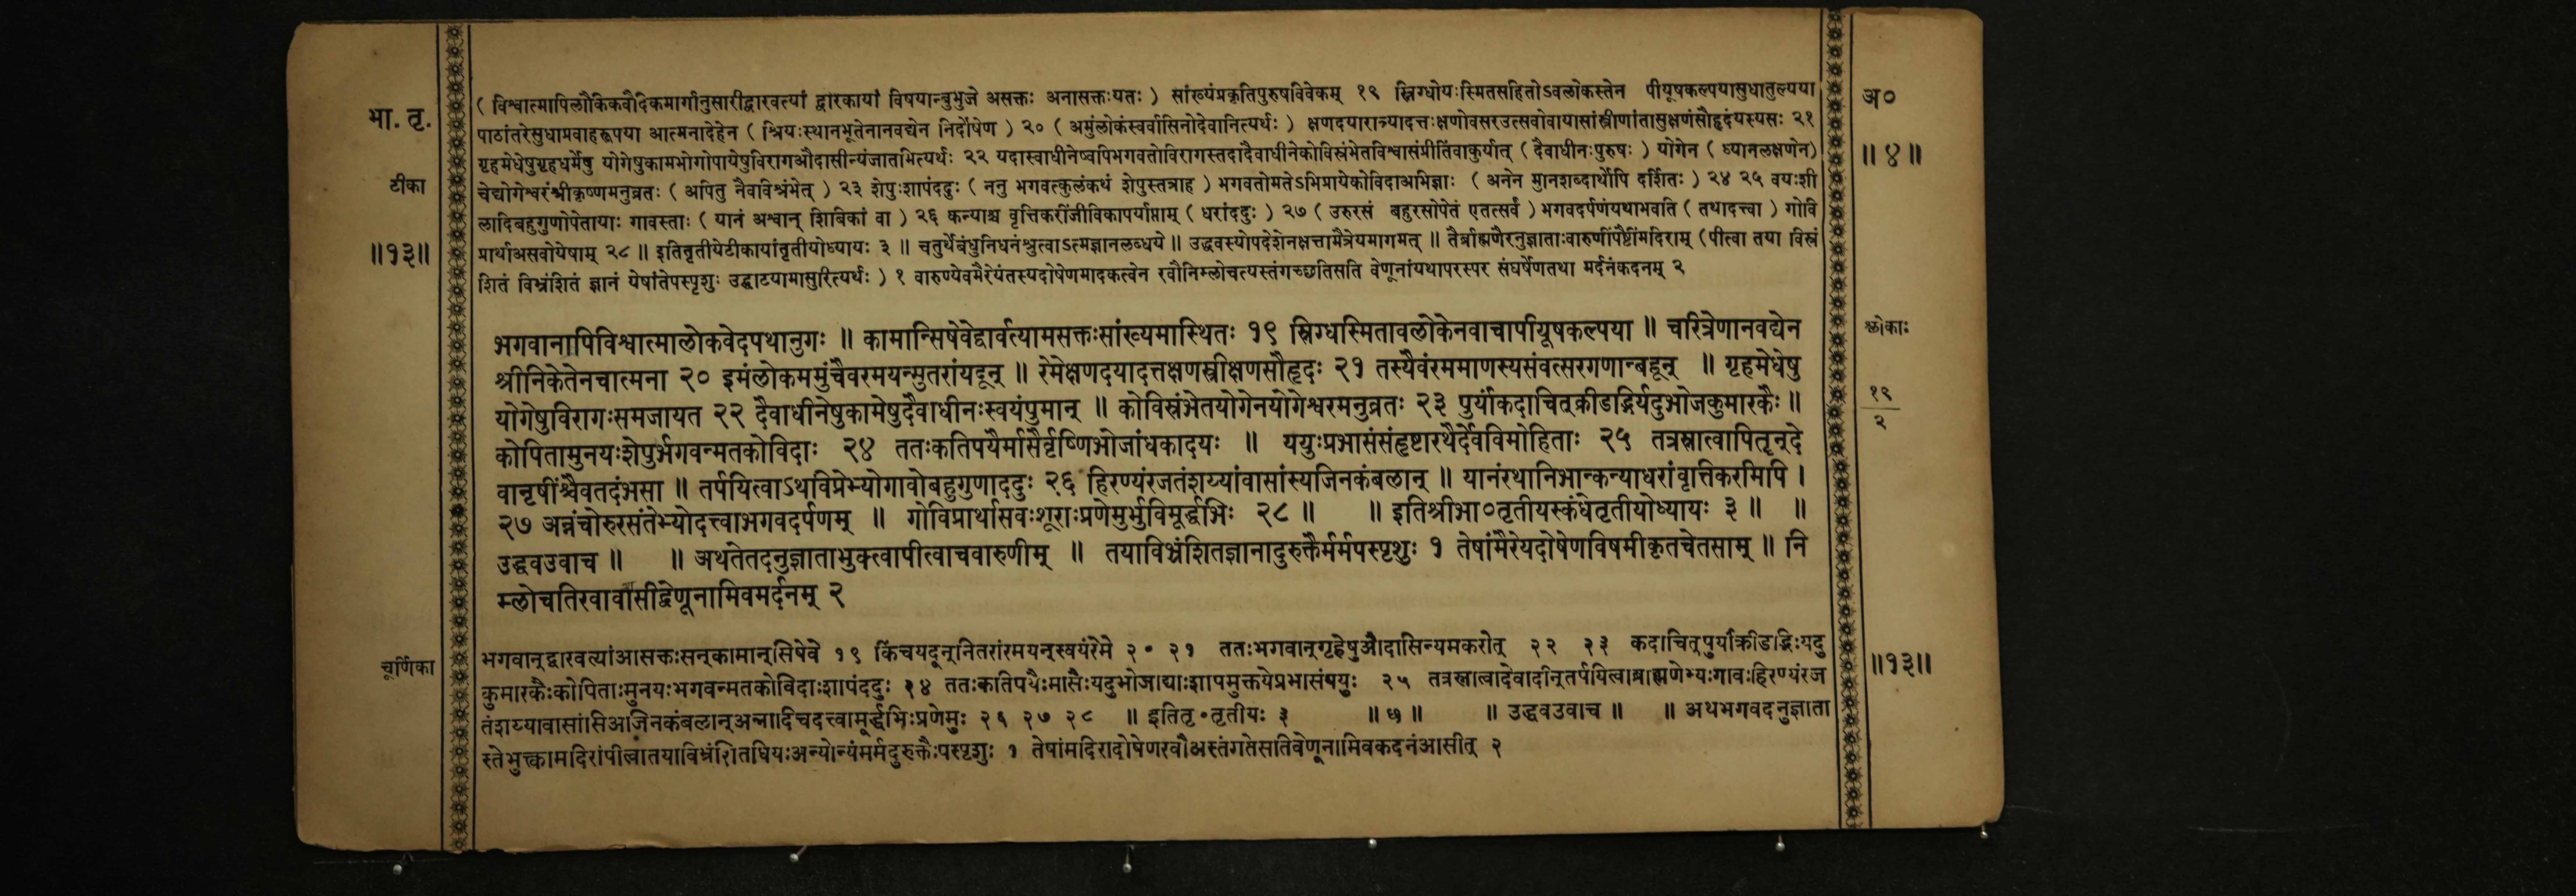 भा. तृ.
टीका
॥१३॥
चूर्णिका
(विश्वात्मापिलौकिकवैदिकमार्गानुसारीद्वारवत्यां द्वारकायां विषयान्बुभुजे असक्तः अनासक्तःयतः) सांख्यंप्रकृतिपुरुषविवेकम् १९ स्निग्धोयःस्मितसहितोऽवलोकस्तेन पीयूषकल्पयासुधातुल्यया
पाठांतरेसुधाप्रवाहरूपया आत्मनादेहेन (श्रियःस्थानभूतेनानवद्येन निर्दोषेण) २० (अमुंलोकंस्वर्वासिनोदेवानित्यर्थः) क्षणदयारात्र्यादत्तःक्षणोवसरउत्सवोवायासांस्त्रीणांतासुक्षणंसौहृदंयस्यसः २१
गृहमेधेषुगृहधर्मेषु योगेषुकामभोगोपायेषुविरागऔदासीन्यंजातमित्यर्थः २२ यदास्वाधीनेष्वपिभगवतोविरागस्तदादैवाधीनेकोविस्रंभेतविश्वासंप्रीतिंवाकुर्यात् (दैवाधीनःपुरुषः) योगेन (ध्यानलक्षणेन)
चेद्योगेश्वरंश्रीकृष्णमनुव्रतः (अपितु नैवविश्रंभेत्) २३ शेपुःशापंददुः (ननु भगवत्कुलंकथं शेपुस्तत्राह) भगवतोमतेऽभिप्रायेकोविदाअभिज्ञाः (अनेन मुनिशब्दार्थोपि दर्शितः) २४ २५ वयःशी
लादिबहुगुणोपेतायाः गावस्ताः (यानं अश्वान् शिबिकां वा) २६ कन्याश्च वृत्तिकरींजीविकापर्याप्ताम् (धरांददुः) २७ (उरुरसं बहुरसोपेतं एतत्सर्वं) भगवदर्पणंयथाभवति (तथादत्त्वा) गोवि
प्रार्थाअसवोयेषाम् २८ ॥ इतितृतीयेटीकायांतृतीयोध्यायः ३ ॥ चतुर्थेबंधुनिधनंश्रुत्वाऽत्मज्ञानलब्धये ॥ उद्धवस्योपदेशेनक्षत्तामैत्रेयमागमत् ॥ तैर्ब्राह्मणैरनुज्ञाताःवारुणींपैष्टींमदिराम् (पीत्वा तया विस्रं
शितं विभ्रंशितं ज्ञानं येषांतेपस्पृशुः उद्घाटयामासुरित्यर्थः) १ वारुण्येवमैरेयंतस्यदोषेणमादकत्वेन रवौनिम्लोचत्यस्तंगच्छतिसति वेणूनांयथापरस्पर संघर्षेणतथा मर्दनंकदनम् २
भगवानापिविश्वात्मालोकवेदपथानुगः ॥ कामान्सिषेवेद्वार्वत्यामसक्तःसांख्यमास्थितः १९ स्निग्धस्मितावलोकेनवाचापीयूषकल्पया ॥ चरित्रेणानवद्येन
श्रीनिकेतेनचात्मना २० इमंलोकममुंचैवरमयन्सुतरांयदून् ॥ रेमेक्षणदयादत्तक्षणस्त्रीक्षणसौहृदः २१ तस्यैवंरममाणस्यसंवत्सरगणान्बहून् ॥ गृहमेधेषु
योगेषुविरागःसमजायत २२ दैवाधीनेषुकामेषुदैवाधीनःस्वयंपुमान् ॥ कोविस्रंभेतयोगेनयोगेश्वरमनुव्रतः २३ पुर्यांकदाचित्क्रीडद्भिर्यदुभोजकुमारकैः ॥
कोपितामुनयःशेपुर्भगवन्मतकोविदाः २४ ततःकतिपयैर्मासैर्वृष्णिभोजांधकादयः ॥ ययुःप्रभासंसंहृष्टारथैर्देवविमोहिताः २५ तत्रस्नात्वापितॄन्दे
वानृषींश्चैवतदंभसा ॥ तर्पयित्वाऽथविप्रेभ्योगावोबहुगुणाददुः २६ हिरण्यंरजतंशय्यांवासांस्यजिनकंबलान् ॥ यानंरथानिभान्कन्याधरांवृत्तिकरीमपि ।
२७ अन्नंचोरुरसंतेभ्योदत्त्वाभगवदर्पणम् ॥ गोविप्रार्थासवःशूराःप्रणेमुर्भुविमूर्द्धभिः २८ ॥ ॥ इतिश्रीभा०तृतीयस्कंधेतृतीयोध्यायः ३ ॥ ॥
उद्धवउवाच ॥ ॥ अथतेतदनुज्ञाताभुक्त्वापीत्वाचवारुणीम् ॥ तयाविभ्रंशितज्ञानादुरुक्तैर्मर्मपस्पृशुः १ तेषांमैरेयदोषेणविषमीकृतचेतसाम् ॥ नि
म्लोचतिरवावासीद्वेणूनामिवमर्दनम् २
भगवान्द्वारवत्यांआसक्तःसन्कामान्सिषेवे १९ किंचयदून्नितरांरमयन्स्वयंरेमे २० २१ ततःभगवान्गृहेषुऔदासिन्यमकरोत् २२ २३ कदाचित्पुर्यांक्रीडाद्भिःयदु
कुमारकैःकोपिताःमुनयःभगवन्मतकोविदाःशापंददुः २४ ततःकतिपयैःमासैःयदुभोजाद्याःशापमुक्तयेप्रभासंययुः २५ तत्रस्नात्वादेवादीन्तर्पयित्वाब्राह्मणेभ्यःगावःहिरण्यंरज
तंशय्यावासांसिआजिनकंबलान्अन्नादिचदत्त्वामूर्द्धभिःप्रणेमुः २६ २७ २८ ॥ इतितृ०तृतीयः ३ ॥ छ ॥ ॥ उद्धवउवाच ॥ ॥ अथभगवदनुज्ञाता
स्तेभुक्त्कामदिरांपीत्वातयाविभ्रंशितधियःअन्योन्यंमर्मदुरुक्तैःपस्पृशुः १ तेषांमदिरादोषेणरवौअस्तंगतेसतिवेणूनामिवकदनंआसीत् २
अ०
॥४॥
श्लोकाः
१९
२
॥१३॥